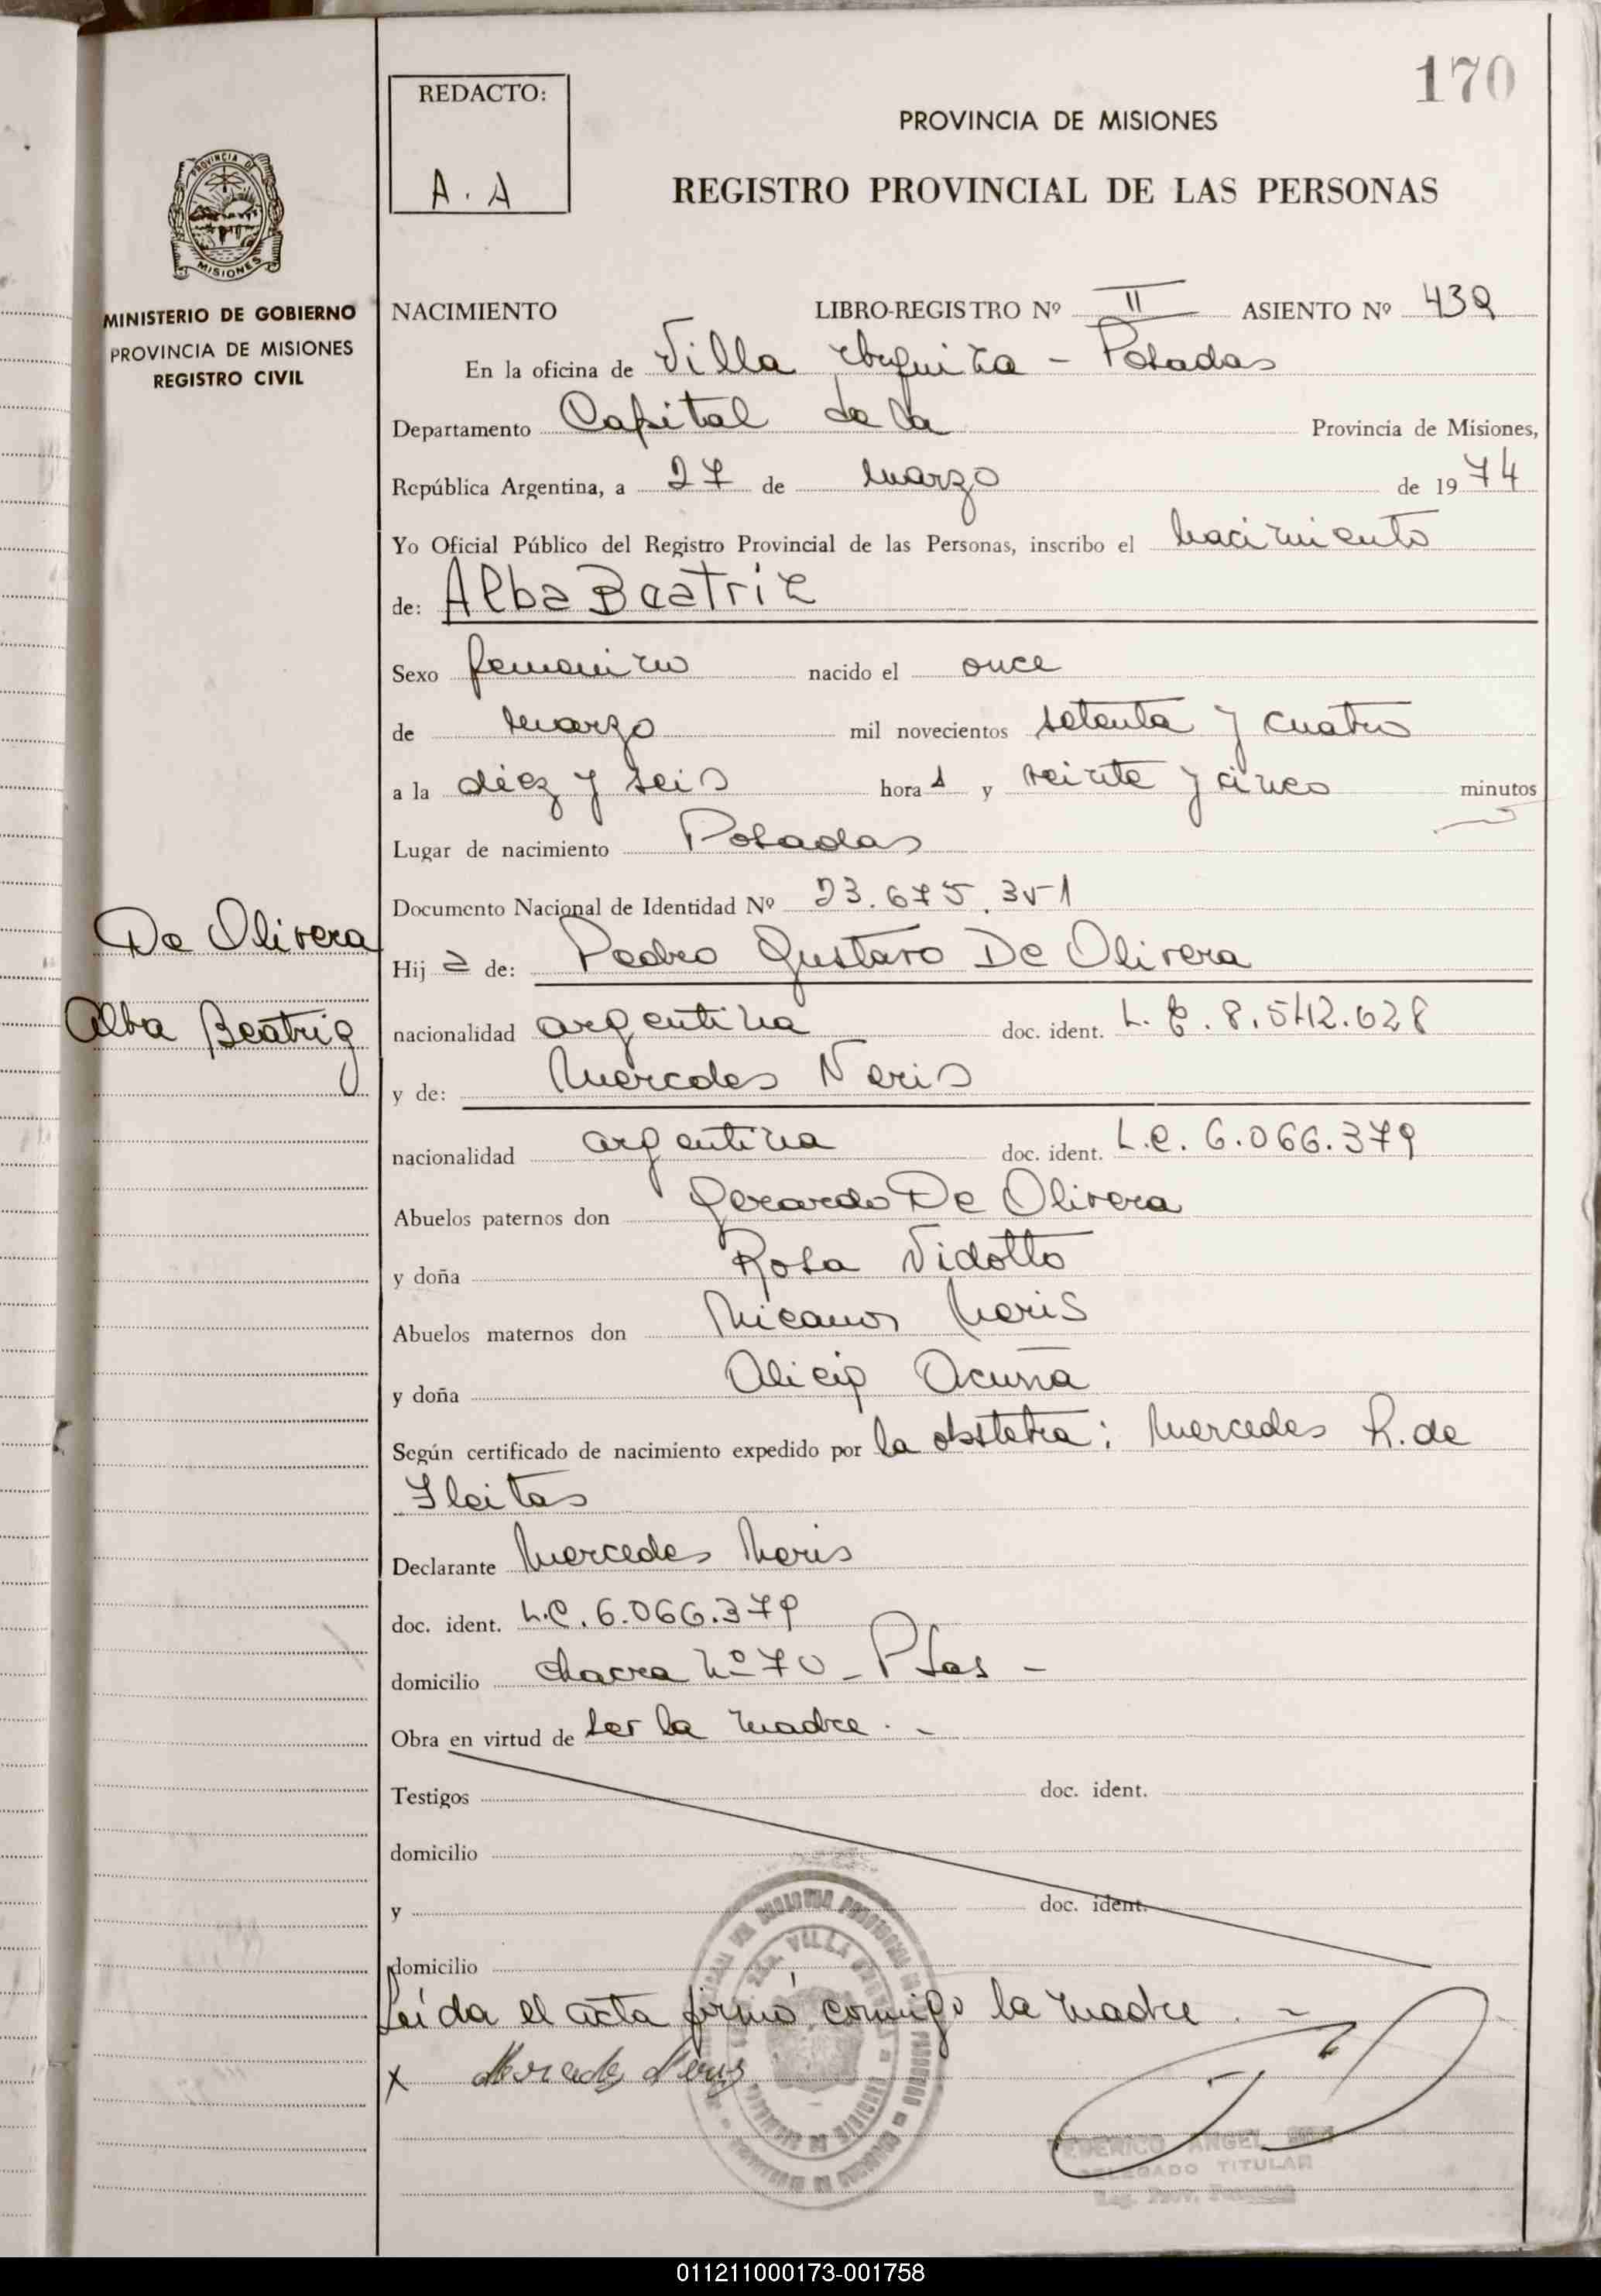 170
REDACTO:
A. A
PROVINCIA DE MISIONES
REGISTRO PROVINCIAL DE LAS PERSONAS
PROVINCIA DE
MISIONES
MINISTERIO DE GOBIERNO
PROVINCIA DE MISIONES
REGISTRO CIVIL
NACIMIENTO LIBRO-REGISTRO Nº II ASIENTO Nº 439
En la oficina de Villa Urquiza - Posadas
Departamento Capital de la Provincia de Misiones,
República Argentina, a 27 de marzo de 1974
Yo Oficial Público del Registro Provincial de las Personas, inscribo el nacimiento
de: Alba Beatriz
Sexo femenino nacido el once
de marzo mil novecientos setenta y cuatro
a la diez y seis hora s y veinte y cinco minutos
Lugar de nacimiento Posadas
Documento Nacional de Identidad Nº 23.675.351
De Olivera
Alba Beatriz
Hij a de: Pedro Gustavo De Olivera
nacionalidad argentina doc. ident. L. E. 8.542.628
y de: Mercedes Neris
nacionalidad argentina doc. ident. L.C. 6.066.379
Abuelos paternos don Gerardo De Olivera
y doña Rosa Vidotto
Abuelos maternos don Nicanor Neris
y doña Alicia Acuña
Según certificado de nacimiento expedido por la obstetra: Mercedes R. de
Fleitas
Declarante Mercedes Neris
doc. ident. L.C. 6.066.379
domicilio chacra Nº 70 - Psas -
Obra en virtud de ser la madre. -
Testigos doc. ident.
domicilio
y doc. ident.
domicilio
Leída el acta firmó conmigo la madre. -
x Mercedes Neris
FEDERICO ANGEL
DELEGADO TITULAR
011211000173-001758